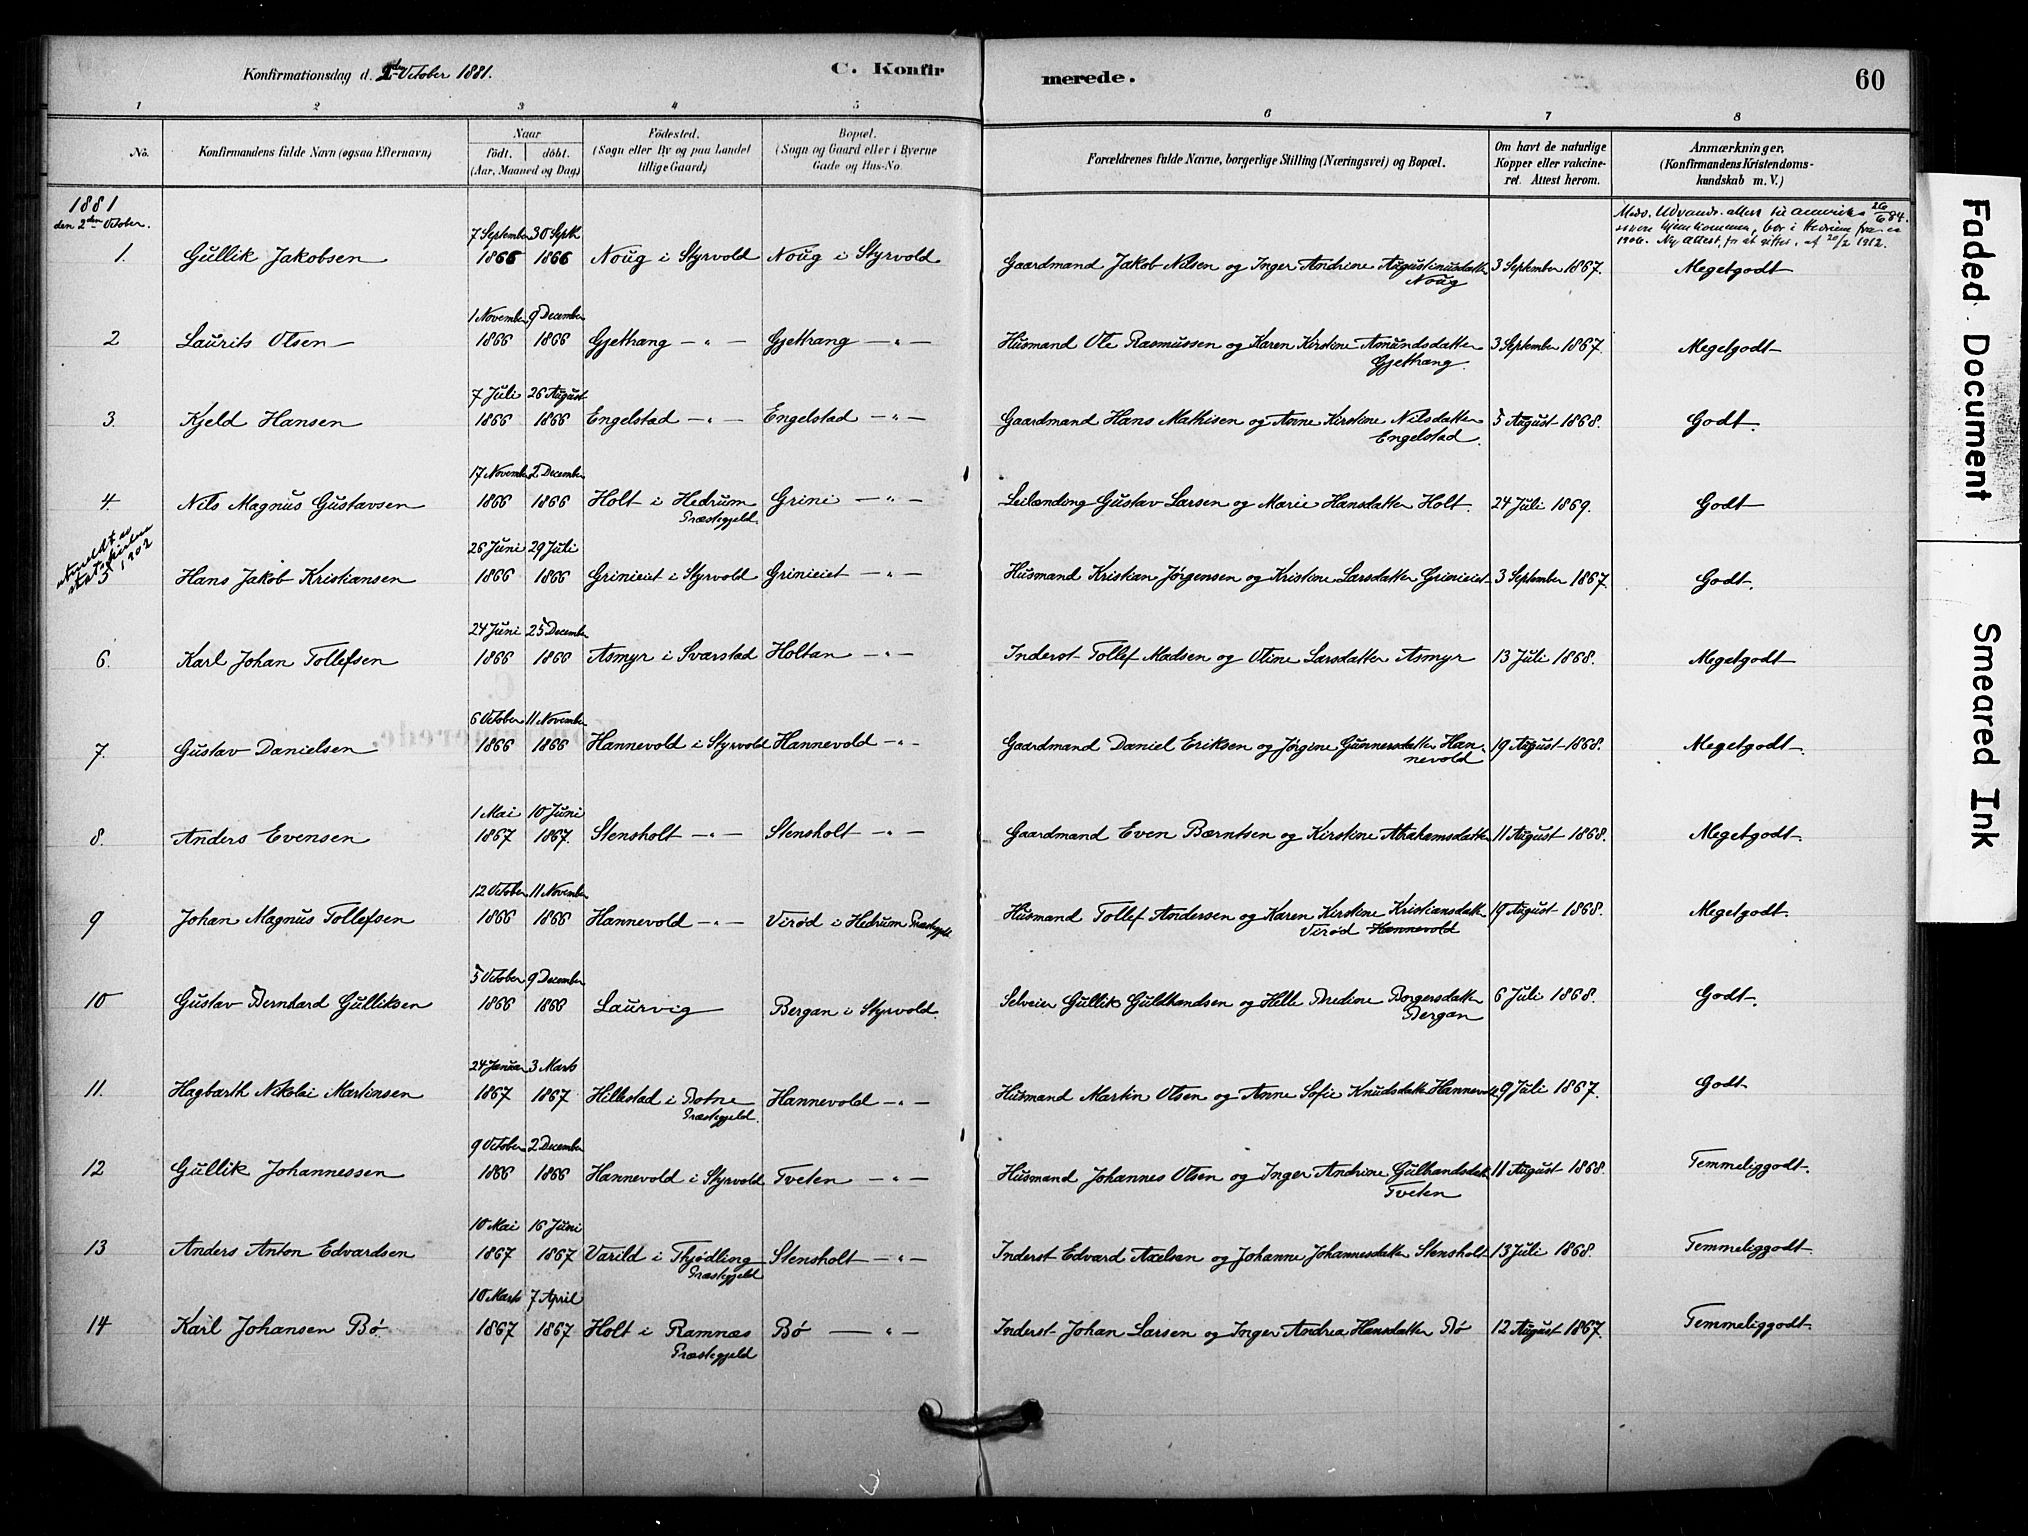 Konfirmationsdag d. 2den October 1881.
C. Konfirmerede.
60
1 2 3 4 5 6 7 8
No.
Konfirmandens fulde Navn (ogsaa Efternavn)
Naar
födt. döbt.
(Aar, Maaned og Dag)
Födested.
(Sogn eller By og paa Landet
tillige Gaard)
Bopæl.
(Sogn og Gaard eller i Byerne
Gade og Hus-No.
Forældrenes fulde Navne, borgerlige Stilling (Næringsvei) og Bopæl.
Om havt de naturlige
Kopper eller vakcine-
ret. Attest herom.
Anmærkninger,
(Konfirmandens Kristendoms-
kundskab m. V.)
1881
den 2den October.
Udvandr. attest til Amerika 26/6 84.
senere hjemkommen, bor i Hedrum
1906. Ny attest, for at giftes, af 20/2 1912.
7 September 30 Septbr
1. Gullik Jakobsen 1866 1866 Noug i Styrvold Noug i Styrvold Gaardmand Jakob Nilsen og Inger Andrine Augustinusdatter 3 September 1867. Megetgodt
Noug
1 November 9 December
2 Laurits Olsen 1866 1866 Gjethang — " — Gjethang — " — Husmand Ole Rasmussen og Karen Kirstine Amundsdatter 3 September 1867. Megetgodt
Gjethang.
7 Juli 26 August
3. Kjeld Hansen 1866 1866 Engelstad — " — Engelstad — " — Gaardmand Hans Mathisen og Anne Kirstine Nilsdatter 5 August 1868. Godt.
Engelstad.
17 November 2 December
4. Nils Magnus Gustavsen 1866 1866 Holt i Hedrum Grini — " — Leilænding Gustav Larsen og Marie Hansdatter Holt. 24 Juli 1869. Godt
Præstegjeld.
utmeldt av
statskirken
1202
26 Juni 29 Juli
5 Hans Jakob Kristiansen 1866 1866 Grinieiet i Styrvold Grinieiet — " — Husmand Kristian Jørgensen og Kristine Larsdatter Grinieiet 3 September 1867. Godt.
24 Juni 25 December
6. Karl Johan Tollefsen 1866 1866 Asmyr i Svarstad Holtan — " — Inderst Tollef Madsen og Otine Larsdatter Asmyr 13 Juli 1868. Megetgodt
6 October 11 November
7. Gustav Danielsen 1866 1866 Hannevold i Styrvold Hannevold — " — Gaardmand Daniel Eriksen og Jørgine Gunnersdatter Han- 19 August 1868. Megetgodt.
nevold
1 Mai 10 Juni
8. Anders Evensen 1867 1867. Stensholt — " — Stensholt — " — Gaardmand Even Berntsen og Kirstine Abrahamsdatter 11 August 1868. Megetgodt.
12 October 11 November
9 Johan Magnus Tollefsen 1866 1866 Hannevold — " — Virød i Hedrum Præstegjeld Husmand Tollef Andersen og Karen Kirstine Kristiansdatter 19 August 1868. Megetgodt.
Virød Hannevold
5 October 9 December
10 Gustav Bernhard Gulliksen 1866 1866 Laurvig Bergan i Styrvold. Selveier Gullik Gulbrandsen og Helle Bredine Borgersdatter 6 Juli 1868. Godt.
Bergan
24 Januar 3 Marts
11. Hagbarth Nikolai Martinsen 1867 1867 Hillestad i Botne Hannevold — " — Husmand Martin Olsen og Anne Sofie Knudsdatter Hannevold 9 Juli 1867. Godt
Præstegjeld.
9 October 2 December
12 Gullik Johannessen 1866 1866 Hannevold i Styrvold Tveten — " — Husmand Johannes Olsen og Inger Andrine Gulbrandsdatter 11 August 1868. Temmeliggodt.
Tveten
10 Mai 16 Juni
13 Anders Anton Edvardsen 1867 1867 Varild i Thjødling Stensholt — " — Inderst Edvard Axelsen og Johanne Johannesdatter Stensholt 13 Juli 1868. Temmeliggodt.
Præstegjeld
10 Marts 7 April
14 Karl Johansen Bø. 1867 1867 Holt i Ramnæs Bø — " — Inderst Johan Larsen og Inger Andrea Hansdatter Bø 12 August 1867. Temmeliggodt.
Præstegjeld
Faded Document
Smeared Ink